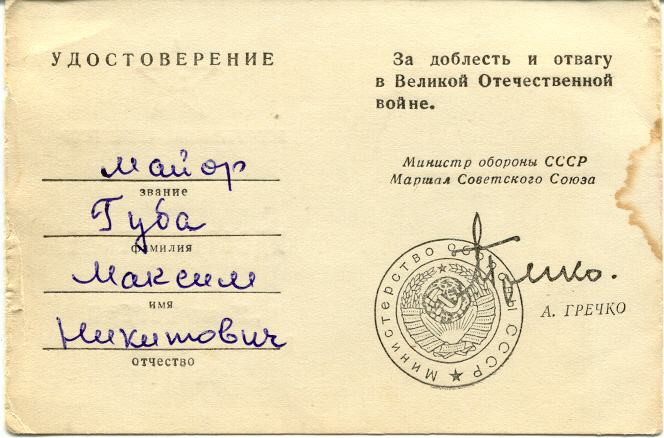 УДОСТОВЕРЕНИЕ
майор
звание
Губа
фамилия
Максим
имя
Никитович
отчество
За доблесть и отвагу
в Великой Отечественной
войне.
Министр обороны СССР
Маршал Советского Союза
Министерство обороны СССР
Гречко.
А. ГРЕЧКО